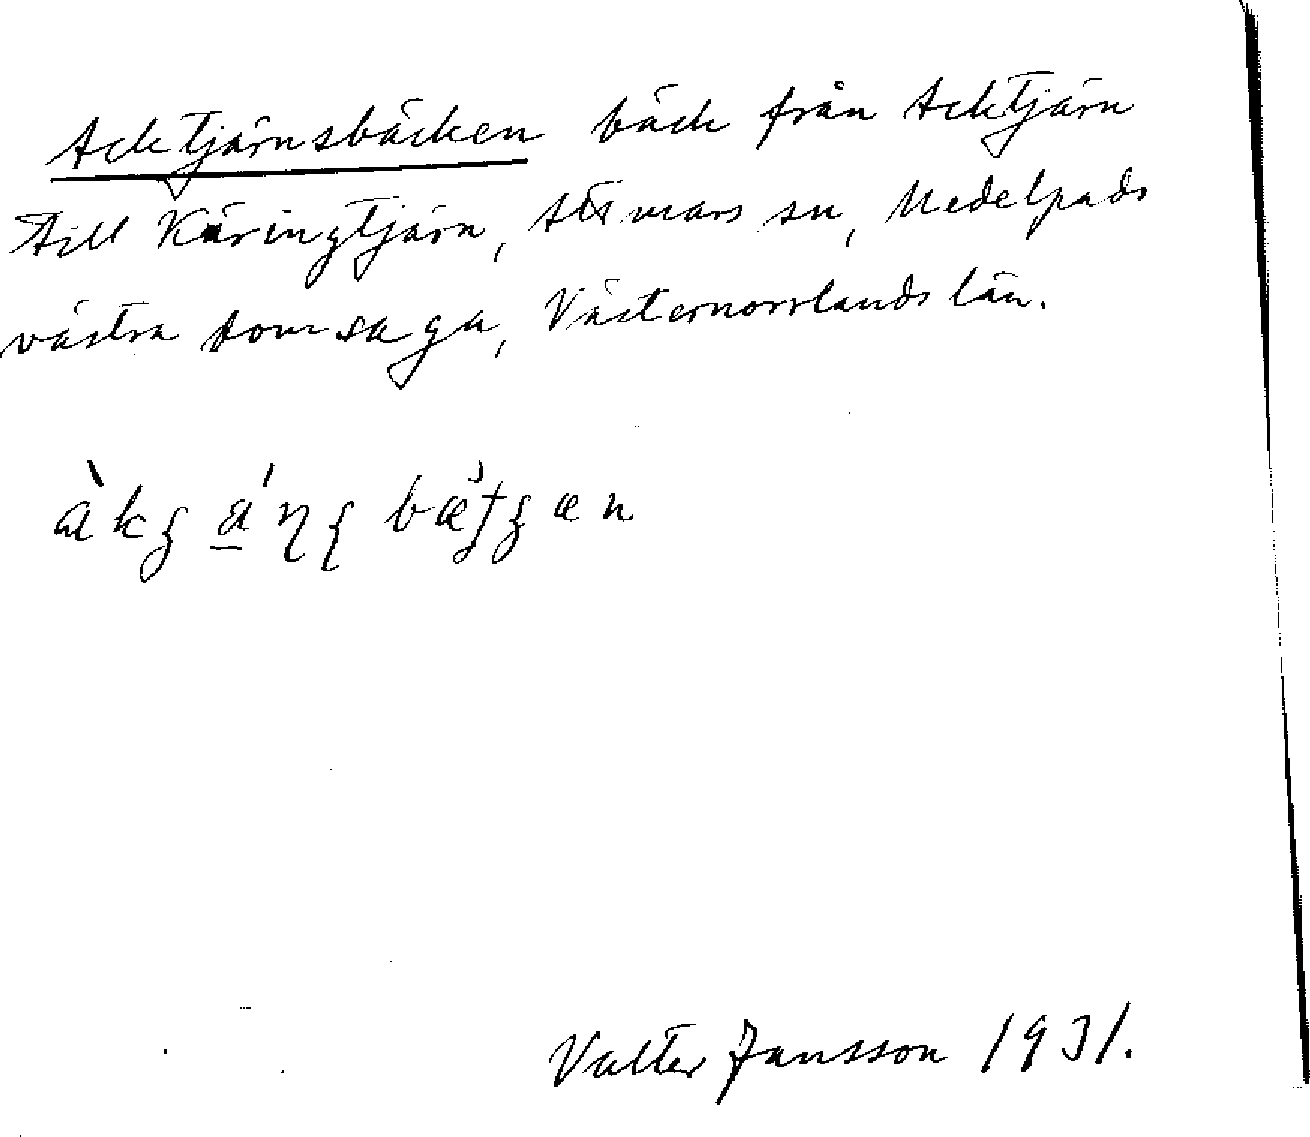 Acktjärnsbäcken bäck från Acktjärn
till Käringtjärn, Attmars sn, Medelpads
västra domsaga, Västernorrlands län.
Valter Jansson 1931.